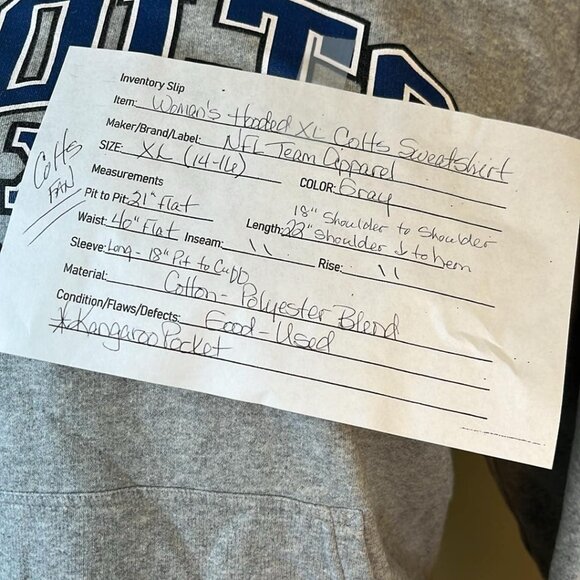 OLTS
Inventory Slip
Item: Women's Hooded XL Colts Sweatshirt
Maker/Brand/Label: NFL Team Apparel
SIZE: XL (14-16) COLOR: Gray
Colts
FAN
Measurements
18" Shoulder to Shoulder
Pit to Pit: 21" flat Length: 22" Shoulder ↓ to hem
Waist: 40" Flat Inseam: \\ Rise: \\
Sleeve: Long - 18" Pit to Cuff
Material: Cotton - Polyester Blend
Condition/Flaws/Defects: Good - Used
*Kangaroo Pocket